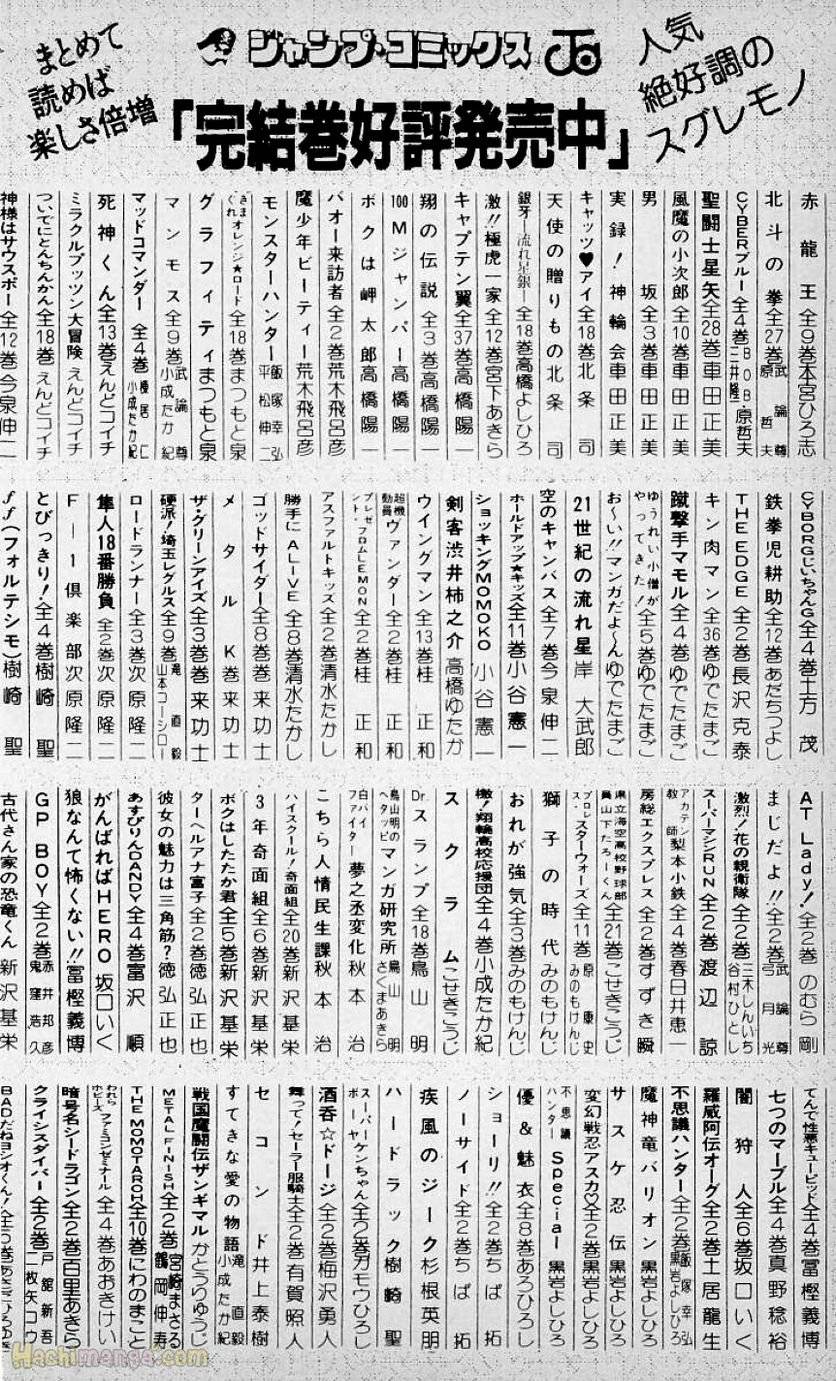 まとめて
読めば
楽しさ倍増
ジャンプ・コミックス
人気
絶好調の
スグレモノ
「完結巻好評発売中」
赤龍王 全9巻 本宮ひろ志
北斗の拳 全27巻 武論尊 原哲夫
CYBERブルー 全4巻 BOB 三井隆一 原哲夫
聖闘士星矢 全28巻 車田正美
風魔の小次郎 全10巻 車田正美
男坂 全3巻 車田正美
実録!神輪会 車田正美
キャッツ♥アイ 全18巻 北条司
天使の贈りもの 北条司
銀牙―流れ星 銀― 全18巻 高橋よしひろ
激!!極虎一家 全12巻 宮下あきら
キャプテン翼 全37巻 高橋陽一
翔の伝説 全3巻 高橋陽一
100Mジャンパー 高橋陽一
ボクは岬太郎 高橋陽一
バオー来訪者 全2巻 荒木飛呂彦
魔少年ビーティー 荒木飛呂彦
モンスターハンター 飯塚幸弘 平松伸二
きまぐれオレンジ★ロード 全18巻 まつもと泉
グラフィティ まつもと泉
マンモス 全9巻 武論尊 小成たか紀
マッドコマンダー 全4巻 榛居仁 小成たか紀
死神くん 全13巻 えんどコイチ
ミラクルプッツン大冒険 えんどコイチ
ついでにとんちんかん 全18巻 えんどコイチ
神様はサウスポー 全12巻 今泉伸二
CYBORGじいちゃんG 全4巻 土方茂
鉄拳児耕助 全12巻 あだちつよし
THE EDGE 全2巻 長沢克泰
キン肉マン 全36巻 ゆでたまご
蹴撃手マモル 全4巻 ゆでたまご
ゆうれい小僧がやってきた! 全5巻 ゆでたまご
お〜い!!マンガだよ〜ん ゆでたまご
21世紀の流れ星 岸大武郎
空のキャンバス 全7巻 今泉伸二
ホールドアップ★キッズ 全11巻 小谷憲一
ショッキングMOMOKO 小谷憲一
剣客渋井柿之介 高橋ゆたか
ウイングマン 全13巻 桂正和
超機動員ヴァンダー 全2巻 桂正和
プレゼント・フロムLEMON 全2巻 桂正和
アスファルトキッズ 全2巻 清水たかし
勝手にALIVE 全8巻 清水たかし
ゴッドサイダー 全8巻 巻来功士
メタルK 巻来功士
ザ・グリーンアイズ 全3巻 巻来功士
硬派!埼玉レグルス 全9巻 滝直毅 山本コーシロー
ロードランナー 全3巻 次原隆二
隼人18番勝負 全2巻 次原隆二
F-1倶楽部 次原隆二
とびっきり! 全4巻 樹崎聖
ff(フォルテシモ) 樹崎聖
AT Lady! 全2巻 のむら剛
まじだよ!! 全2巻 武論尊 弓月光
激烈!!花の親衛隊 全2巻 三木しんいち 谷村ひとし
スーパーマシンRUN 全2巻 渡辺諒
アカテン教師梨本小鉄 全4巻 春日井恵一
房総エクスプレス 全2巻 すずき瞬
県立海空高校野球部員山下たろーくん 全21巻 こせきこうじ
プロレス・スターウォーズ 全11巻 原康史 みのもけんじ
獅子の時代 みのもけんじ
おれが強気 全3巻 みのもけんじ
檄!翔輪高校応援団 全4巻 小成たか紀
スクラム こせきこうじ
Dr.スランプ 全18巻 鳥山明
鳥山明のヘタッピマンガ研究所 鳥山明 さくまあきら
白バイファイター 夢之丞変化 秋本治
こちら人情民生課 秋本治
ハイスクール!奇面組 全20巻 新沢基栄
3年奇面組 全6巻 新沢基栄
ボクはしたたか君 全5巻 新沢基栄
ターヘルアナ富子 全2巻 徳弘正也
彼女の魅力は三角筋? 徳弘正也
あすびりんDANDY 全4巻 富沢順
がんばればHERO 坂口いく
狼なんて怖くない!! 冨樫義博
GP BOY 全2巻 赤井邦彦 鬼窪浩久
古代さん家の恐竜くん 新沢基栄
てんで性悪キューピッド 全4巻 冨樫義博
七つのマーブル 全4巻 真野稔裕
闇狩人 全6巻 坂口いく
羅威阿伝オーグ 全2巻 土居龍生
不思議ハンター 全2巻 飯塚幸弘 黒岩よしひろ
魔神竜バリオン 黒岩よしひろ
サスケ忍伝 黒岩よしひろ
変幻戦忍アスカ♡ 全2巻 黒岩よしひろ
不思議ハンターSpecial 黒岩よしひろ
優&魅衣 全8巻 あろひろし
ショーリ!! 全2巻 ちば拓
ノーサイド 全2巻 ちば拓
疾風のジーク 杉根英明
ハードラック 樹崎聖
スーパーケンちゃんボーヤ 全2巻 ガモウひろし
酒呑☆ドージ 全2巻 梅沢勇人
舞って!セーラー服騎士 全2巻 有賀照人
セコンド 井上泰樹
すてきな愛の物語 滝直毅 小成たか紀
戦国魔闘伝ザンギマル かとうりゅうじ
METAL FINISH 全2巻 宮崎まさる 鶴岡伸寿
THE MOMOTAROH 全10巻 にわのまこと
われらホビーズ ファミコンゼミナール 全4巻 あおきけい
暗号名シードラゴン 全2巻 百里あきら
クライシスダイバー 全2巻 戸舘新吾 二枚矢コウ
BADだねヨシオくん!
Hachimanga.com